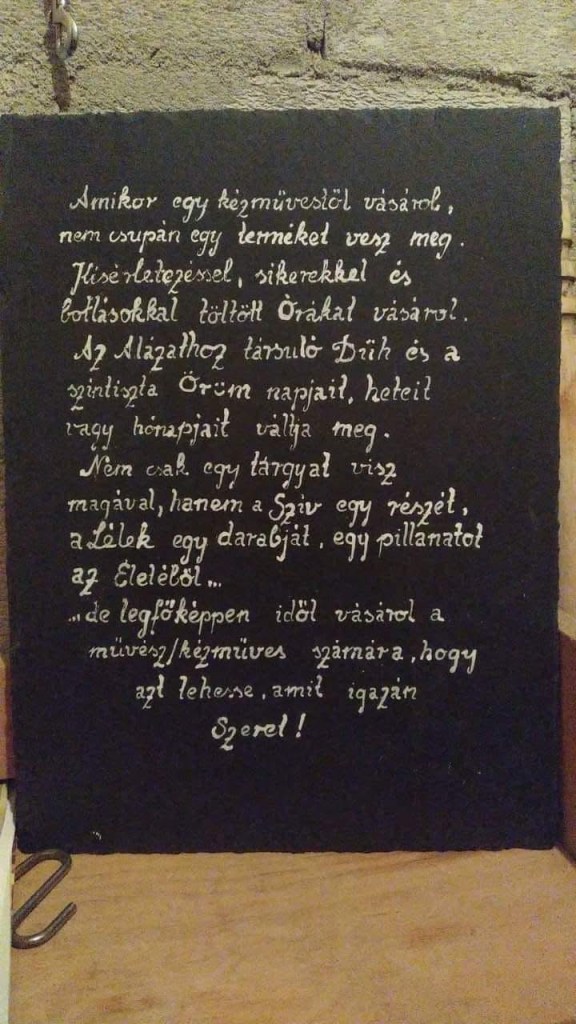 Amikor egy kézművestől vásárol,
nem csupán egy terméket vesz meg.
Kísérletezéssel, sikerekkel és
botlásokkal töltött Órákat vásárol.
Az Alázathoz társuló Düh és a
színtiszta Öröm napjait, heteit
vagy hónapjait váltja meg.
Nem csak egy tárgyat visz
magával, hanem a Szív egy részét,
a Lélek egy darabját, egy pillanatot
az Életéből...
...de legfőképpen időt vásárol a
művész/kézműves számára, hogy
azt tehesse, amit igazán
Szeret!